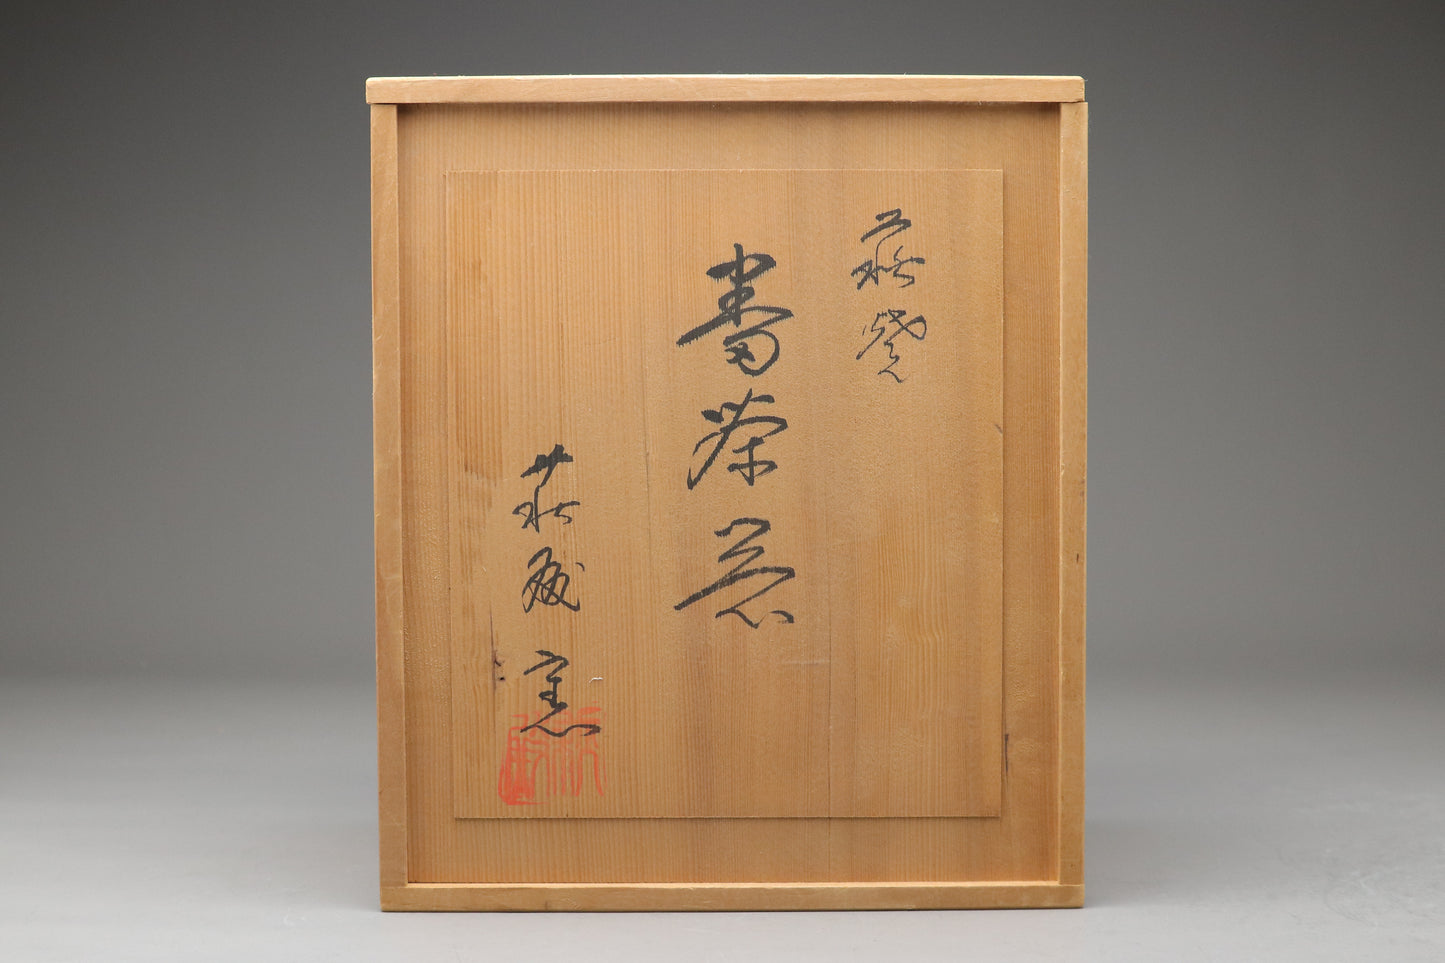 萩焼
番茶器
萩 窯